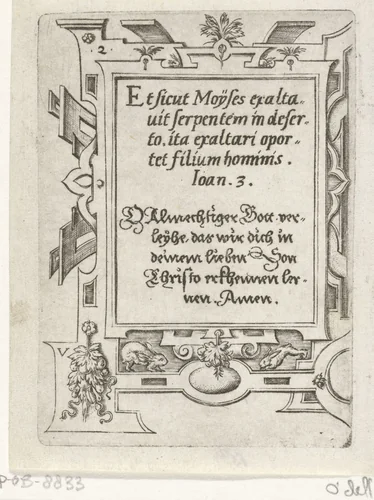 2
Et sicut Moÿses exalta-
uit serpentem in deser-
to. ita exaltari opor-
tet filium hominis.
Ioan. 3.
O Almechtiger Gott ver-
leyhe, das wir dich in
deinem lieben Son
Christo erkhennen ler-
nen. Amen.
V
P-OB-8833